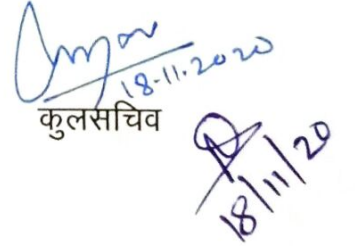 18-11-2020
कुलसचिव
18/11/20